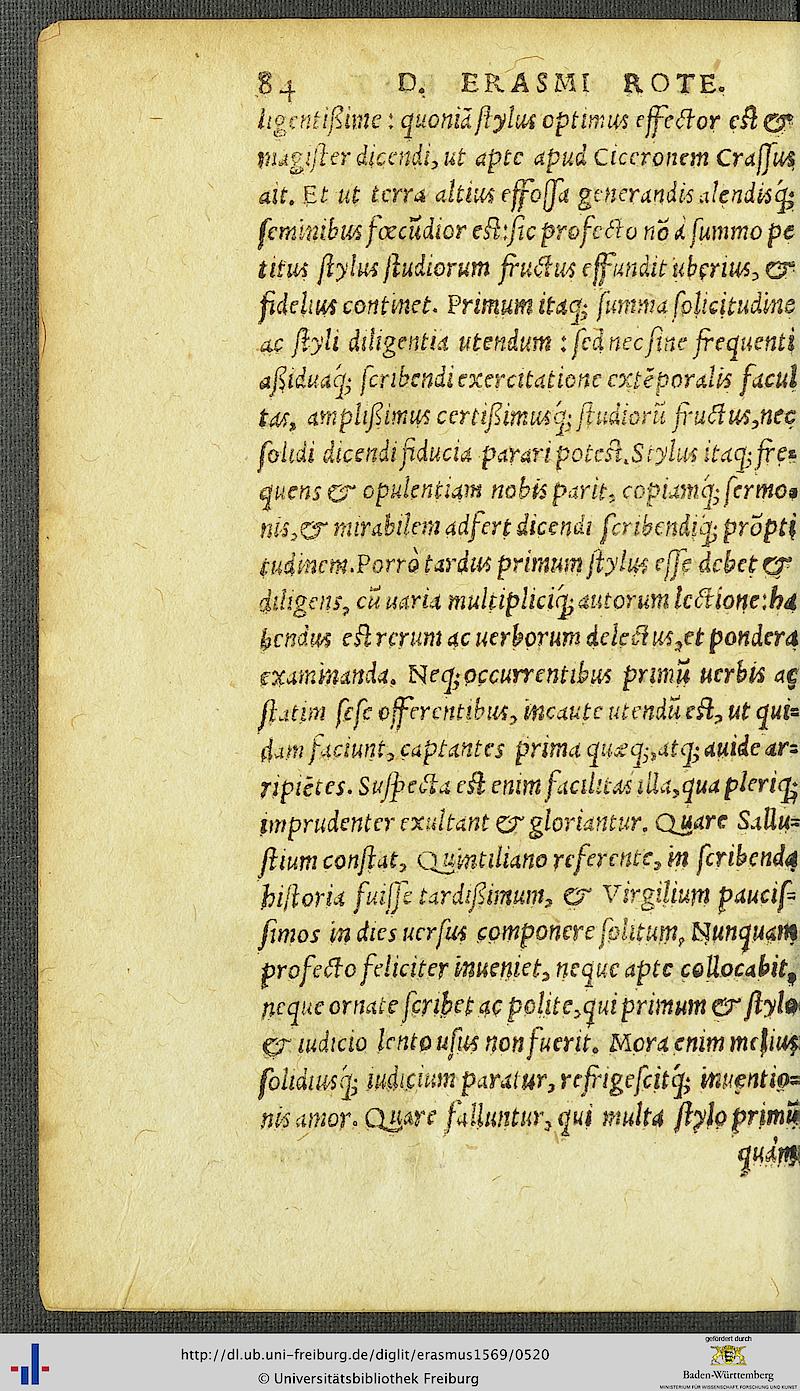 84 D. ERASMI ROTE.
ligentißime : quoniã ſtylus optimus effector eſt &
magiſter dicendi, ut apte apud Ciceronem Craſſus
ait. Et ut terra altius effoſſa generandis alendisq́;
ſeminibus fœcũdior eſt: ſic profecto nõ à ſummo pe
titus ſtylus ſtudiorum fructus effundit uberius, &
fidelius continet. Primum itaq; ſumma ſolicitudine
ac ſtyli diligentia utendum : ſed nec ſine frequenti
aßiduaq́; ſcribendi exercitatione extẽporalis facul
tas, amplißimus certißimusq́; ſtudiorũ fructus, nec
ſolidi dicendi fiducia parari poteſt. Stylus itaq; fre-
quens & opulentiam nobis parit, copiamq́; ſermo-
nis, & mirabilem adfert dicendi ſcribendiq́; prõpti
tudinem. Porrò tardus primum ſtylus eſſe debet &
diligens, cũ uaria multipliciq́; autorum lectione: ha
bendus eſt rerum ac uerborum delectus, et pondera
examinanda. Neq; occurrentibus primũ uerbis ac
ſtatim ſeſe offerentibus, incaute utendũ eſt, ut qui=
dam faciunt, captantes prima quæq;, atq; auide ar=
ripiẽtes. Suſpecta eſt enim facilitas illa, qua pleriq;
imprudenter exultant & gloriantur. Quare Sallu=
ſtium conſtat, Quintiliano referente, in ſcribenda
hiſtoria fuiſſe tardißimum, & Virgilium pauciſ=
ſimos in dies uerſus componere ſolitum, Nunquam
profecto feliciter inueniet, neque apte collocabit,
neque ornate ſcribet ac polite, qui primum & ſtylo
& iudicio lento uſus non fuerit. Mora enim melius
ſolidiusq́; iudicium paratur, refrigeſcitq́; inuentio=
nis amor. Quare falluntur, qui multa ſtylo primũ
quàm
http://dl.ub.uni-freiburg.de/diglit/erasmus1569/0520
© Universitätsbibliothek Freiburg
gefördert durch
Baden-Württemberg
MINISTERIUM FÜR WISSENSCHAFT, FORSCHUNG UND KUNST